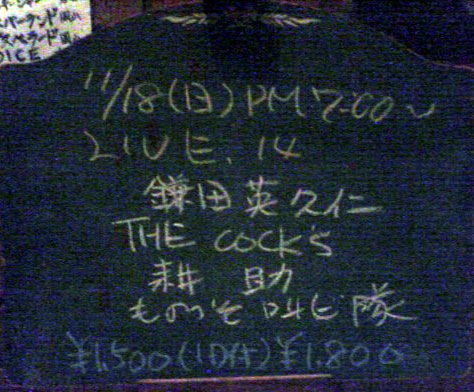 11/18(日)PM 7:00〜
LIVE. 14
鎌田英久仁
THE COCK'S
耕 助
叫ビ隊
¥1,500(1D付)¥1,800